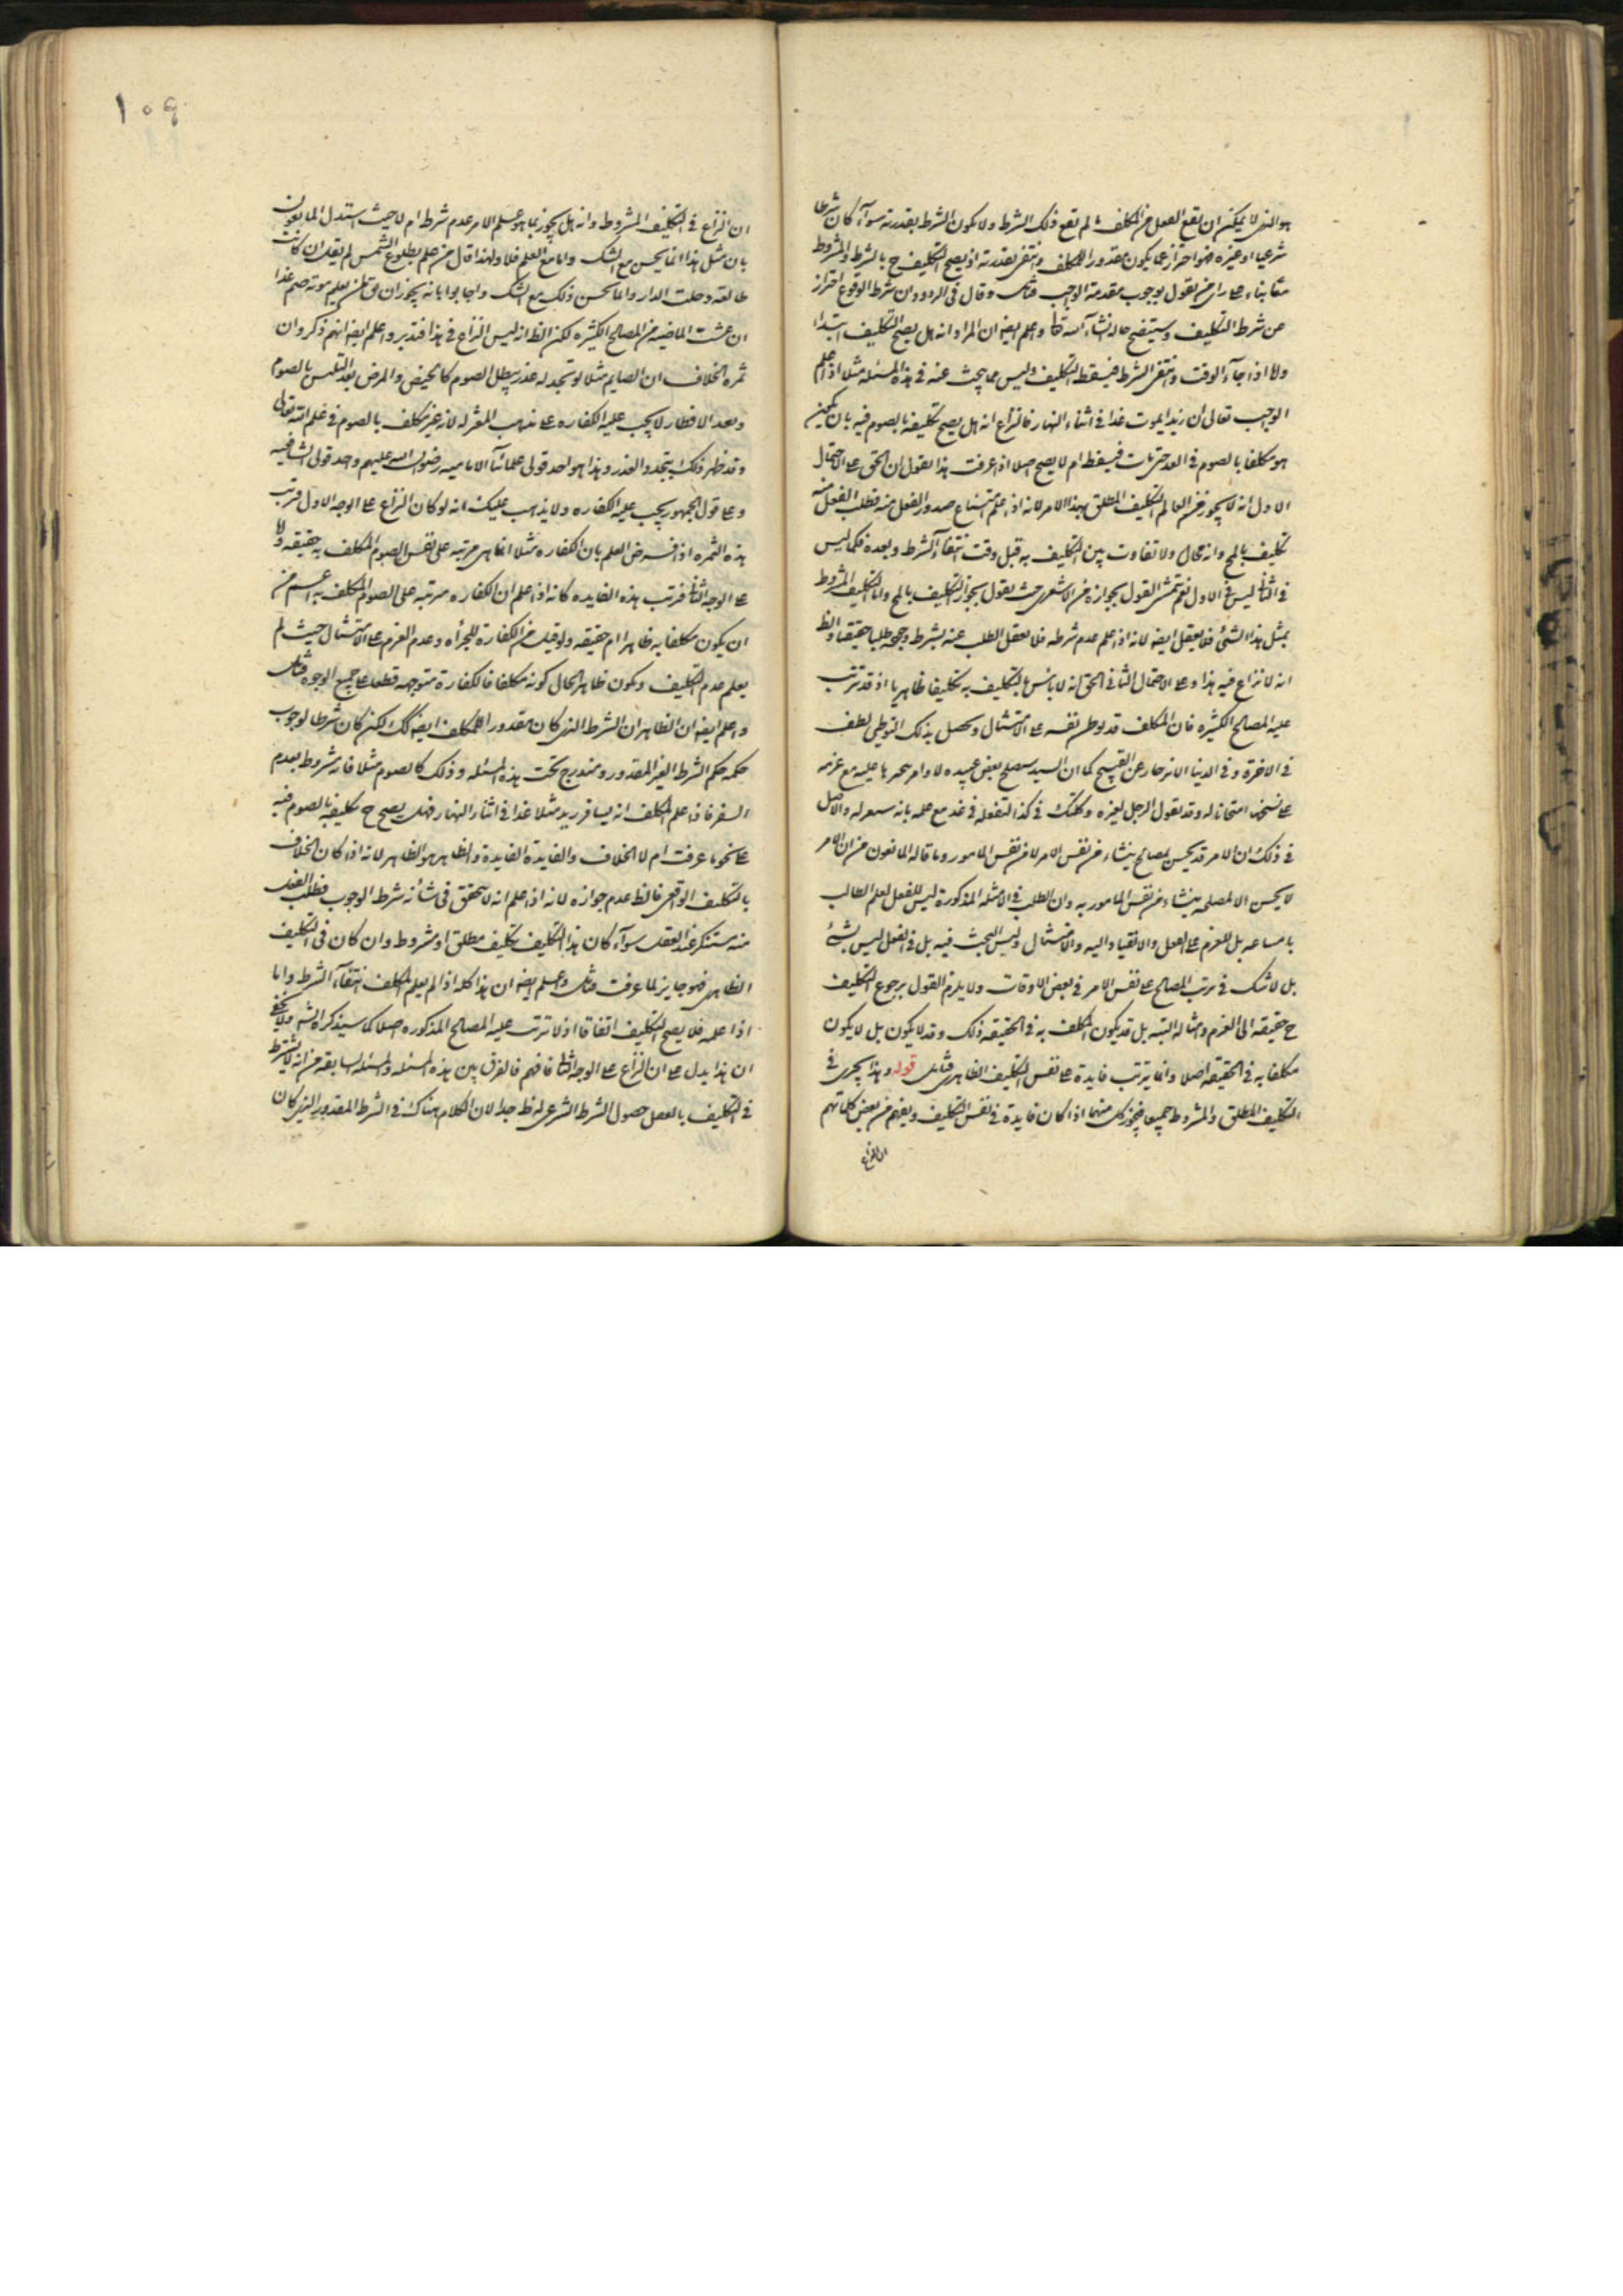 هو الذى لا يمكن ان يقع الفعل من المكلف ما لم يقع ذلك الشرط ولا يكون الشرط بقدرته سوآء كان شرطا
شرعيا او غيره فهو احتراز عما يكون مقدورا للمكلف وانتفى بقدرته اذ يصح التكليف ح بالشرط والمشروط
معا بناء على راى من يقول بوجوب مقدمة الواجب فتامل وقال فى الردود ان شرط الوقوع احتراز
عن شرط التكليف وسيتضح حاله انشآء الله تعالى واعلم ايضا ان المراد انه هل يصح التكليف ابتداء
ولا اذا جآء الوقت وانتفى الشرط فيسقط التكليف وليس مما يبحث عنه فى هذه المسئله مثلا اذا علم
الواجب تعالى أن زيدا يموت غدا فى اثناء النهار فالنزاع انه هل يصح تكليفه بالصوم فيه بان يكون
هو مكلفا بالصوم فى الغد حتى مات فيسقط ام لا يصح اصلا اذا عرفت هذا نقول ان الحق على الاحتمال
الاول انه لا يجوز من العالم التكليف المطلق بهذا الامر لانه اذا علم امتناع صدور الفعل منه فطلب الفعل منه
تكليف بالمح وانه محال ولا تفاوت بين التكليف به قبل وقت انتفآء الشرط وبعده فكما ليس
فى الثانى ليس فى الاول نعم يتمشى القول بجوازه من الاشعرى حيث يقول بتجويز التكليف بالمح واما التكليف المشروط
بمثل هذا الشئ فلا يعقل ايضا لانه اذا علم عدم شرطه فلا يعقل الطلب عنه بشرط وجوده طلبا حقيقيا والظ
انه لا نزاع فيه هذا وعلى الاحتمال الثانى الحق انه لا باس بالتكليف به تكليفا ظاهريا اذ قد تترتب
عليه المصالح الكثيره فان المكلف قد يوطن نفسه على الامتثال ويحصل بذلك التوطين لطف
فى الاخرة وفى الدنيا لانزجاره عن القبيح كما ان السيد يستصلح بعض عبيده لاوامر ينجزها عليه مع عزمه
على نسخها امتحانا له وقد يقول الرجل لغيره وكلتك فى كذا لتفعله فى غد مع علمه بانه سيعزله والاصل
فى ذلك ان الامر قد يحسن لمصالح ينشاء من نفس الامر لا من نفس المامور وما قاله المانعون من ان الامر
لا يحسن الا لمصلحه ينشاء من نفس المامور به وان الطلب فى الامثله المذكورة ليس للفعل لعلم الطالب
بامتناعه بل للعزم على الفعل والانقياد اليه والامتثال وليس البحث فيه بل فى الفعل ليس بشئ
بل لا شك فى ترتب المصالح على نفس الامر فى بعض الاوقات ولا يلزم القول برجوع التكليف
ح حقيقة الى العزم وامثاله البته بل قد يكون المكلف به فى الحقيقه ذلك وقد لا يكون بل لا يكون
مكلفا به فى الحقيقة اصلا وانما يترتب فايدة على نفس التكليف الظاهرى فتامل قوله وهذا يجرى فى
التكليف المطلق والمشروط جميعا فيجوز كل منهما اذا كان فايدة فى نفس التكليف ويفهم من بعض كلماتهم
ان النزاع
١٠٩
ان النزاع فى التكليف المشروط وانه هل يجوز بما هو علم الامر عدم شرط ام لا حيث استدل المانعون
بان مثل هذا انما يحسن مع الشك واما مع العلم فلا ولهذا قال من علم بطلوع الشمس لم يقل ان كانت
طالعة دخلت الدار وانما يحسن ذلك مع الشك واجابوا بانه يجوز ان يق لمن يعلم موته صم غدا
ان عشت الماضيه من المصالح الكثيره لكن الظ انه ليس النزاع فى هذا فتدبر واعلم ايضا انهم ذكروا ان
ثمرة الخلاف ان الصايم مثلا لو تجدد له عذر يبطل الصوم كالحيض والمرض بعد التلبس بالصوم
وبعد الافطار لا يجب عليه الكفاره على مذهب المعتزله لانه غير مكلف بالصوم فى علم الله تعالى
وقد ظهر ذلك بتجدد العذر وهذا هو احد قولى علمائنا الاماميه رضوان الله عليهم واحد قولى الشافعيه
وعلى قول الجمهور يجب عليه الكفاره ولا يذهب عليك انه لو كان النزاع على الوجه الاول فترتب
هذه الثمره اذا فرض العلم بان الكفاره مثلا انما هى مرتبه على نفس الصوم المكلف به حقيقه واما
على الوجه الثانى فترتب هذه الفايده كانه اذا علم ان الكفاره مترتبه على الصوم المكلف به اعم من
ان يكون مكلفا به ظاهرا ام حقيقه ولو قلت من الكفارة للجرأه وعدم العزم على الامتثال حيث لم
يعلم عدم التكليف ويكون ظاهر الحال كونه مكلفا فالكفارة متوجهه قطعا على جميع الوجوه فتامل
واعلم ايضا ان الظاهر ان الشرط الذى كان مقدورا للمكلف ايضا كك لكن كان شرطا لوجوب
حكمه حكم الشرط الغير المقدور ومندرج تحت هذه المسئله وذلك كالصوم مثلا فانه مشروط بعدم
السفر فاذا علم المكلف انه يسافر زيد مثلا غدا فى اثناء النهار فهل يصح ح تكليفه بالصوم فيه
على نحو ما عرفت ام لا الخلاف والفايدة الفايدة والظاهر هو الظاهر لانه اذا كان الخلاف
بالتكليف الواقعى فالظ عدم جوازه لانه اذا علم انه لا يتحقق فى شأنه شرط الوجوب فطلب الفعل
منه مستنكر عند العقل سوآء كان هذا التكليف تكليف مطلق او مشروط وان كان فى التكليف
الظاهرى فهو جايز لما عرفت فتامل واعلم ايضا ان هذا كله اذا لم يعلم المكلف انتفآء الشرط واما
اذا علمه فلا يصح التكليف اتفاقا اذ لا ترتب عليه المصالح المذكوره اصلا كما سيذكره الشه ولا يخفى
ان هذا يدل على ان النزاع على الوجه الثانى فافهم فالفرق بين هذه المسئله والمسئله السابقه من انه لا يشترط
فى التكليف بالفعل حصول الشرط الشرعى له ظ جدا لان الكلام هناك فى الشرط المقدور الذى كان